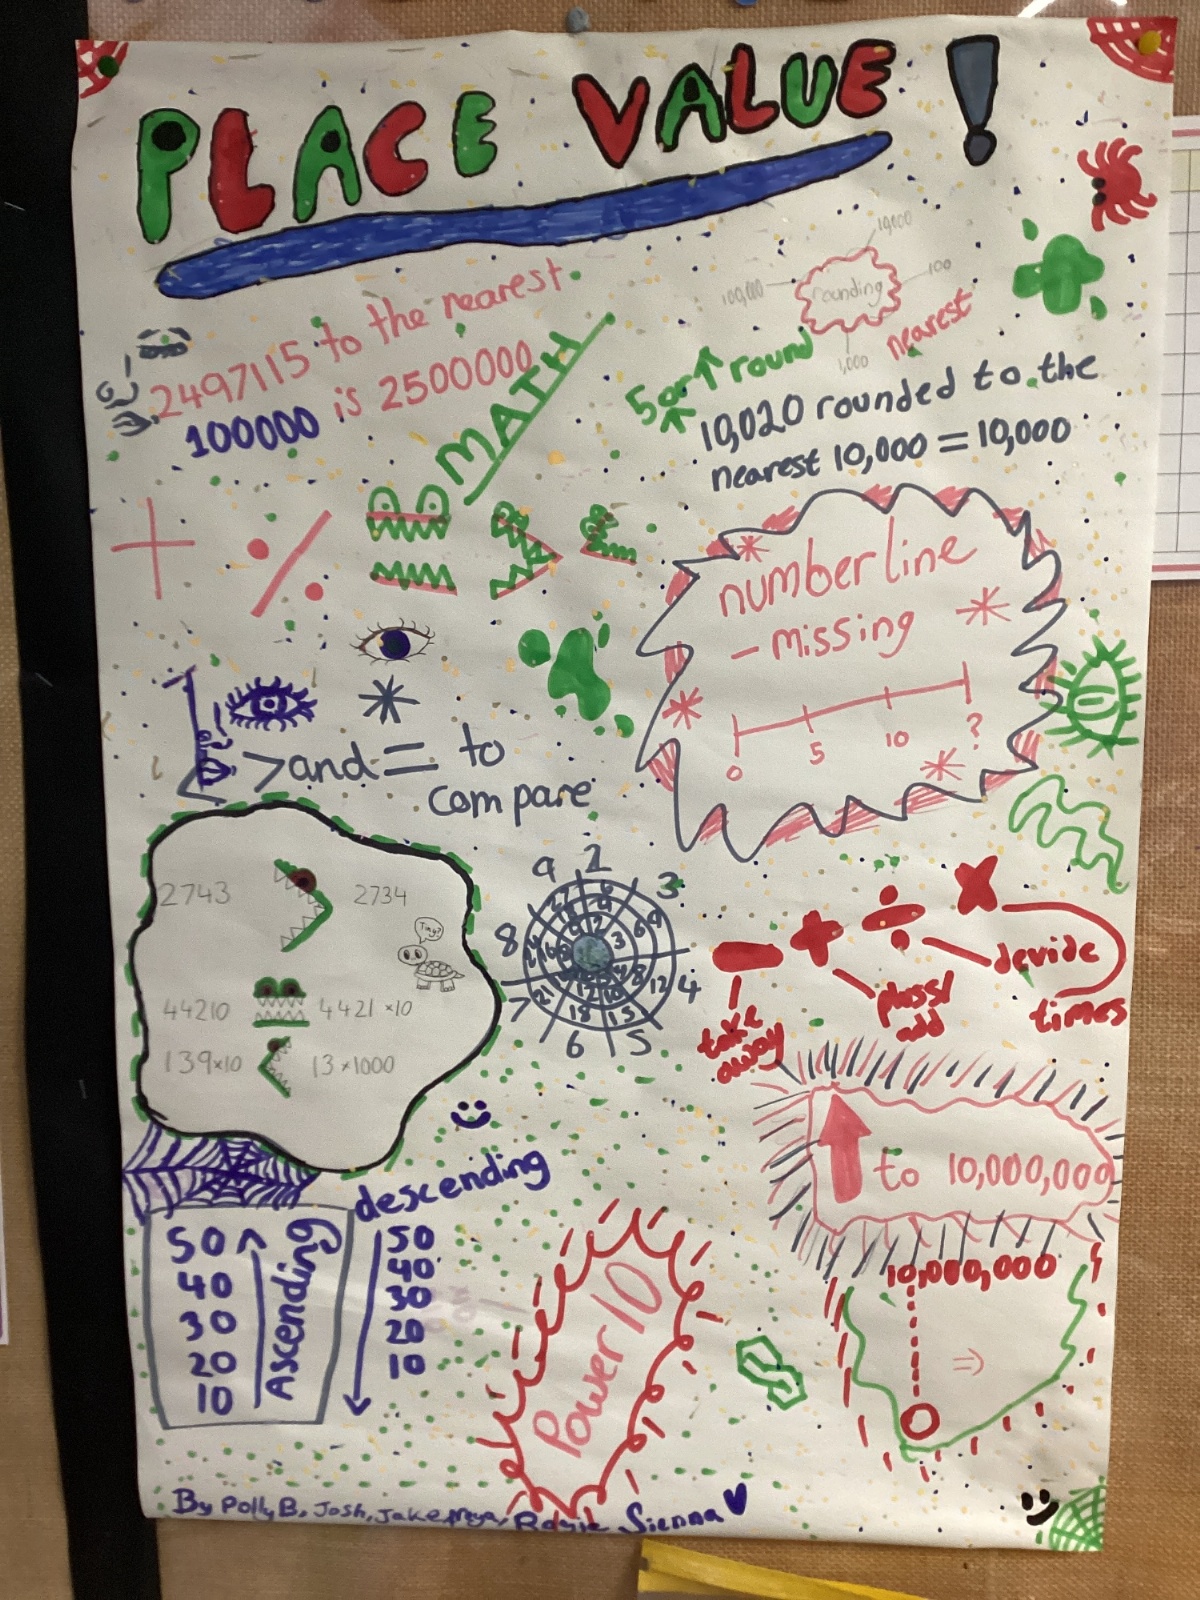 PLACE VALUE!
2497115 to the nearest
100000 is 2500000
MATH
rounding
10,000
100
100,000
1,000
nearest
5 or ↑ round ↑
10,020 rounded to the
nearest 10,000 = 10,000
+ % = > <
number line
- missing
0 5 10 ?
< > and = to
compare
2743 > 2734
Tiny?
44210 = 4421 ×10
139×10 < 13×1000
9 2 3
8 4
7 6 5
- + ÷ ×
take
away
pluss/
add
devide
times
↑ to 10,000,000
10,000,000
=)
descending
50
40
30
20
10
Ascending
50
40
30
20
10
Power 10
By Polly B, Josh, Jake, Sienna